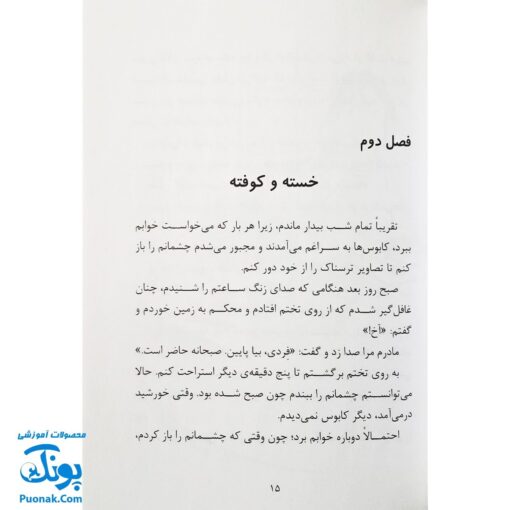 فصل دوم
خسته و کوفته
تقریباً تمام شب بیدار ماندم، زیرا هر بار که می‌خواست خوابم
ببرد، کابوس‌ها به سراغم می‌آمدند و مجبور می‌شدم چشمانم را باز
کنم تا تصاویر ترسناک را از خود دور کنم.
صبح روز بعد هنگامی که صدای زنگ ساعتم را شنیدم، چنان
غافل‌گیر شدم که از روی تختم افتادم و محکم به زمین خوردم و
گفتم: «آخ!»
مادرم مرا صدا زد و گفت: «فِردی، بیا پایین. صبحانه حاضر است.»
به روی تختم برگشتم تا پنج دقیقه‌ی دیگر استراحت کنم. حالا
می‌توانستم چشمانم را ببندم چون صبح شده بود. وقتی خورشید
درمی‌آمد، دیگر کابوس نمی‌دیدم.
احتمالاً دوباره خوابم برد؛ چون وقتی که چشمانم را باز کردم،
۱۵
محصولات آموزشی
پونک
Puonak.Com